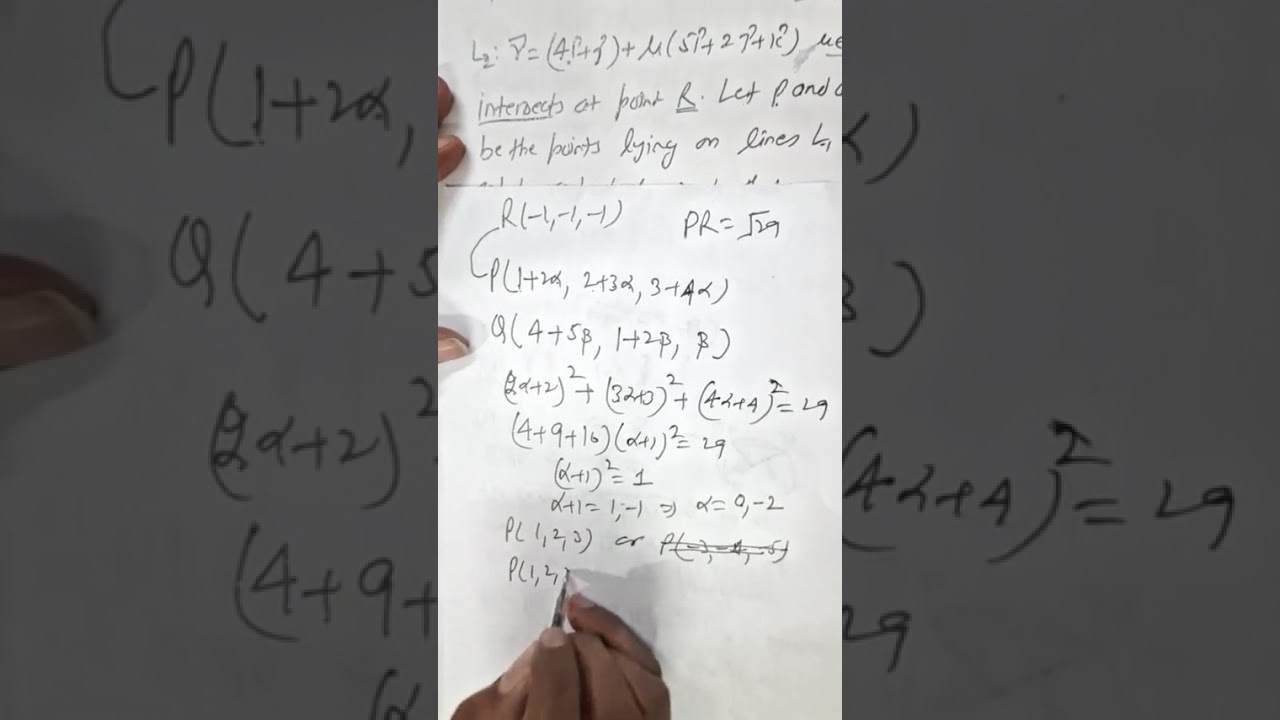 L₂: r̄ = (4î+ĵ) + μ(5î+2ĵ+k̂)
intersects at point R. Let P and
be the points lying on lines L₁
R(-1,-1,-1) PR = √29
P(1+2α, 2+3α, 3+4α)
Q(4+5β, 1+2β, β)
(2α+2)² + (3α+3)² + (4α+4)² = 29
(4+9+16)(α+1)² = 29
(α+1)² = 1
α+1 = 1,-1 ⇒ α = 0,-2
P(1,2,3) or
P(1,2,